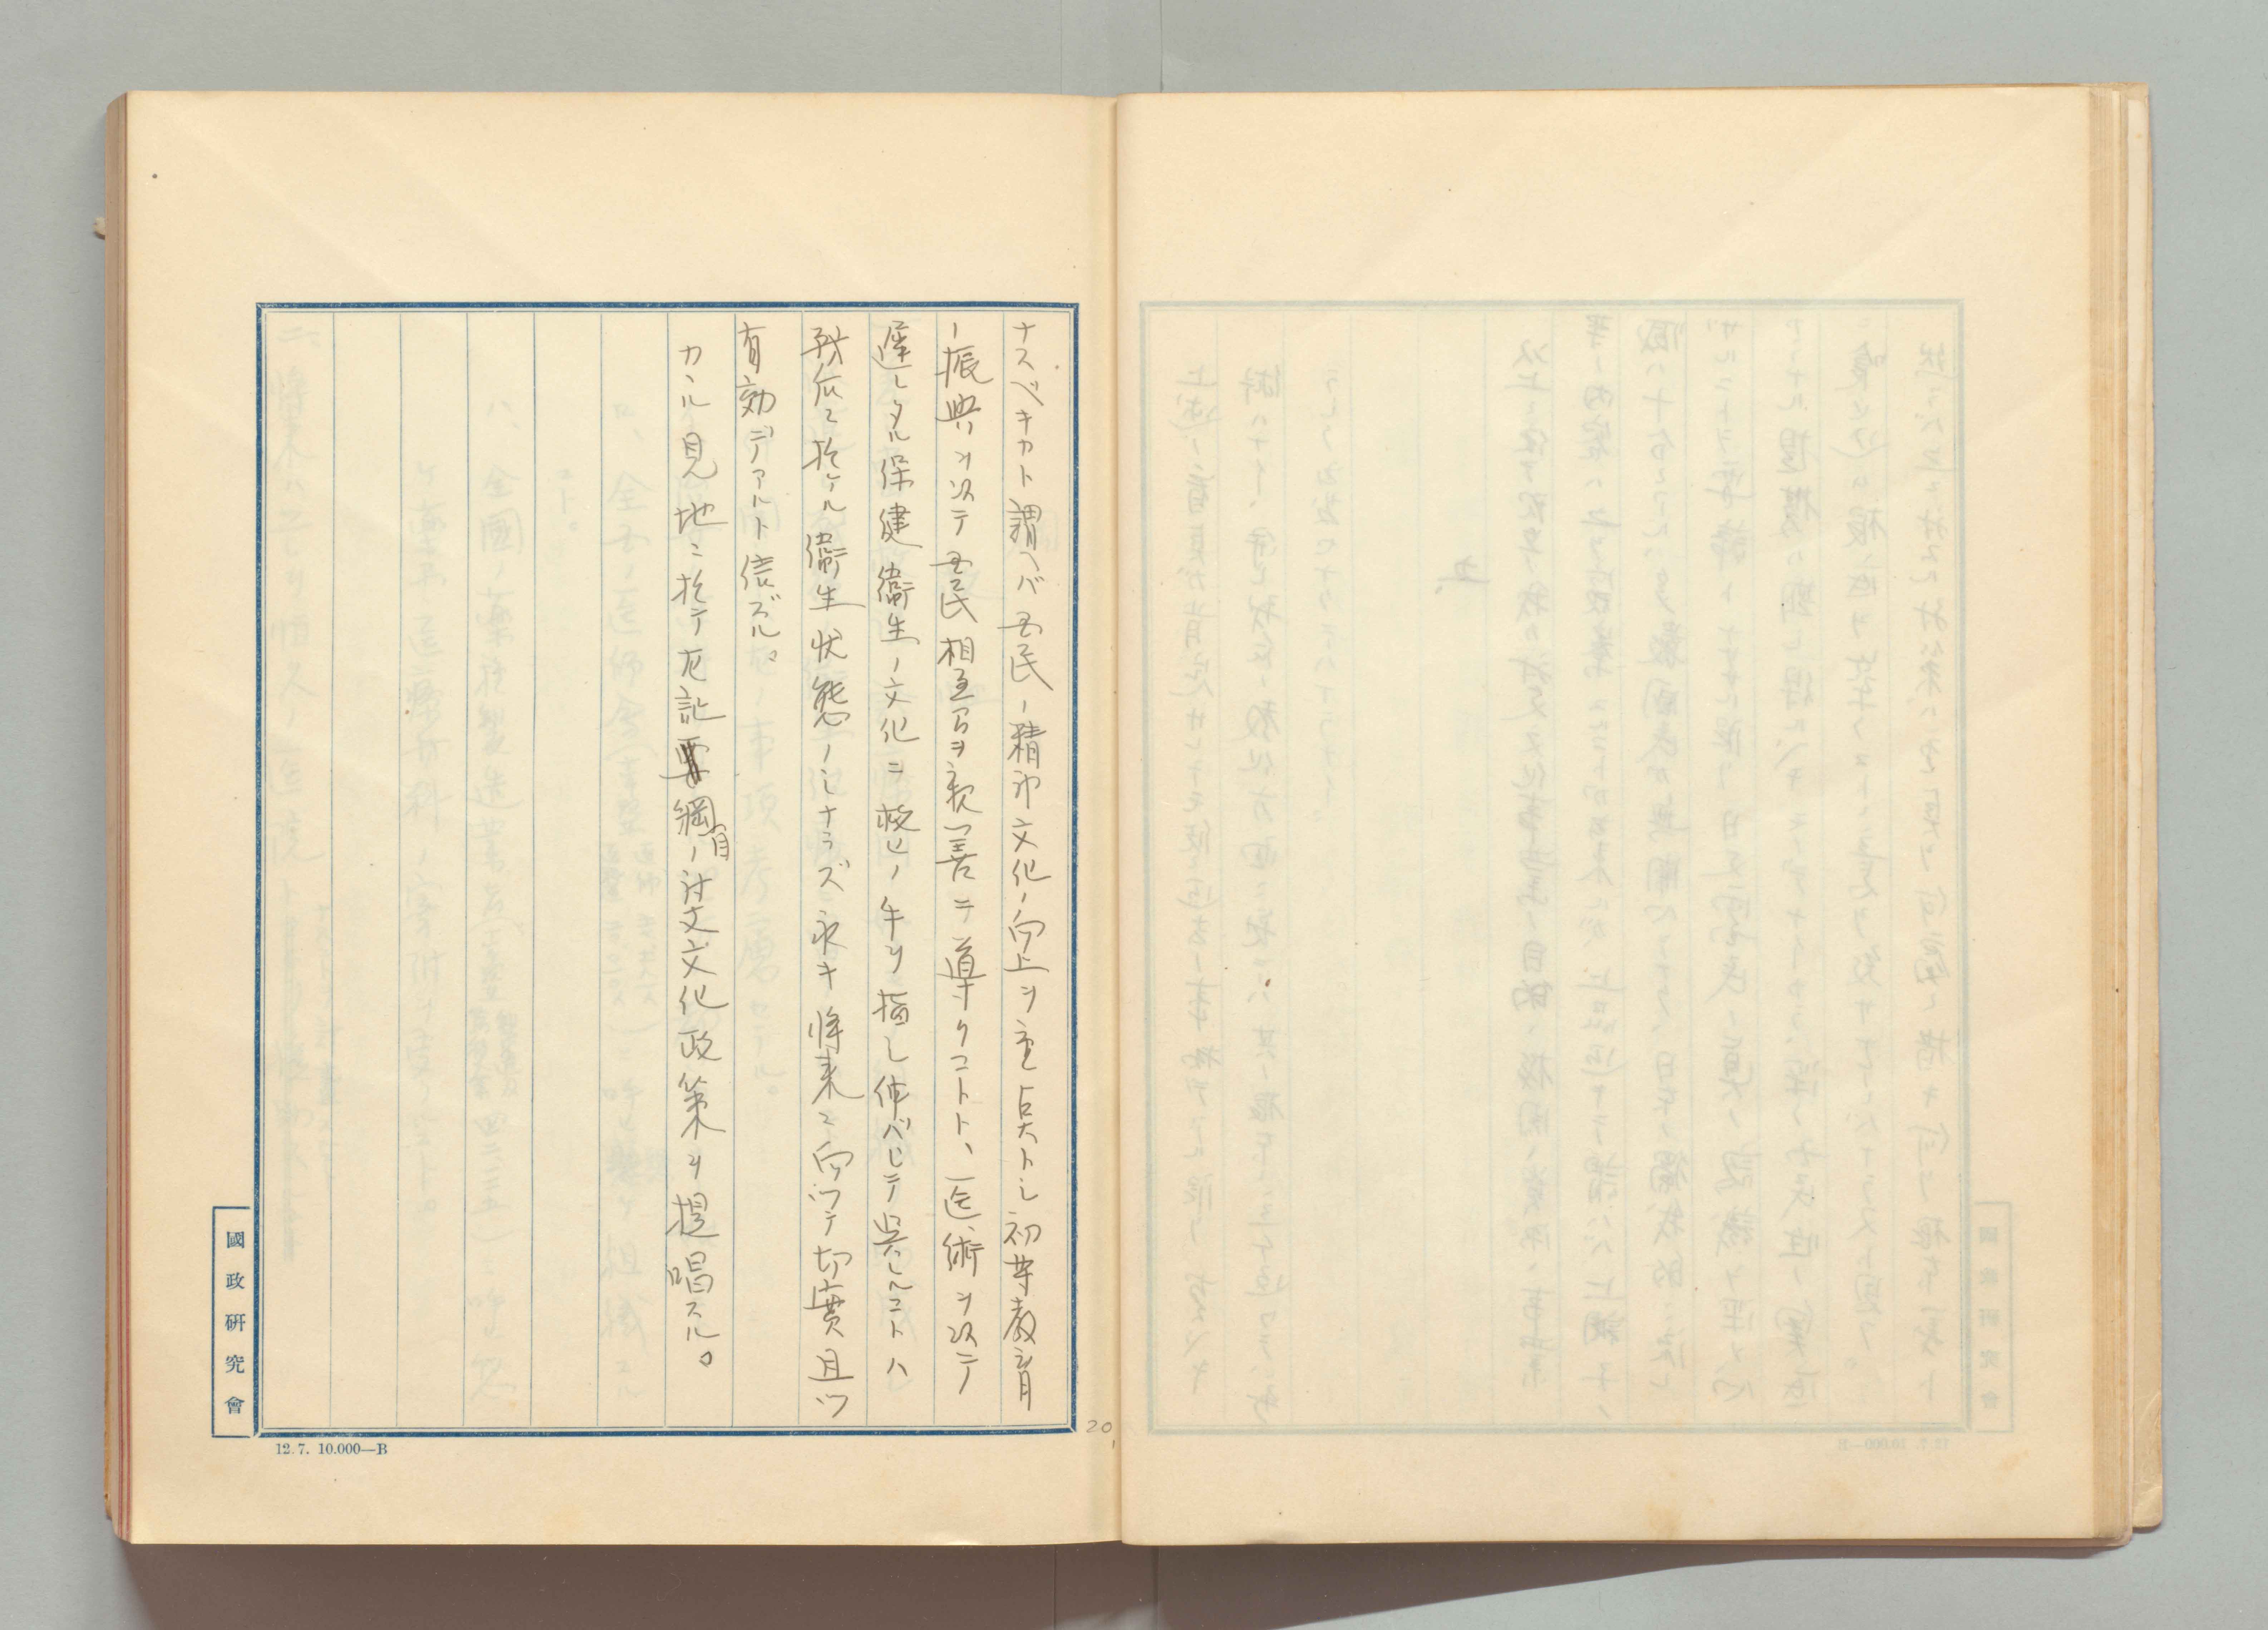 ナスベキカト謂ヘバ五民ノ精神文化ノ向上ヲ重点トシ初等教育
ノ振興ヲ以テ五民相互間ヲ親善ニ導クコトト、医術ヲ以テ
進レタル保健衛生ノ文化ニ救ヒノ手ヲ指シ伸バシテ呉レルコトハ
現在ニ於ケル衛生状態ノミナラズ永キ将来ニ向ツテ切實且ツ
有効デアルト信ズル。
カカル見地ニ於テ左記要綱ノ対支文化政策ヲ提唱スル。
目
國政研究會
12.7. 10.000—B
20